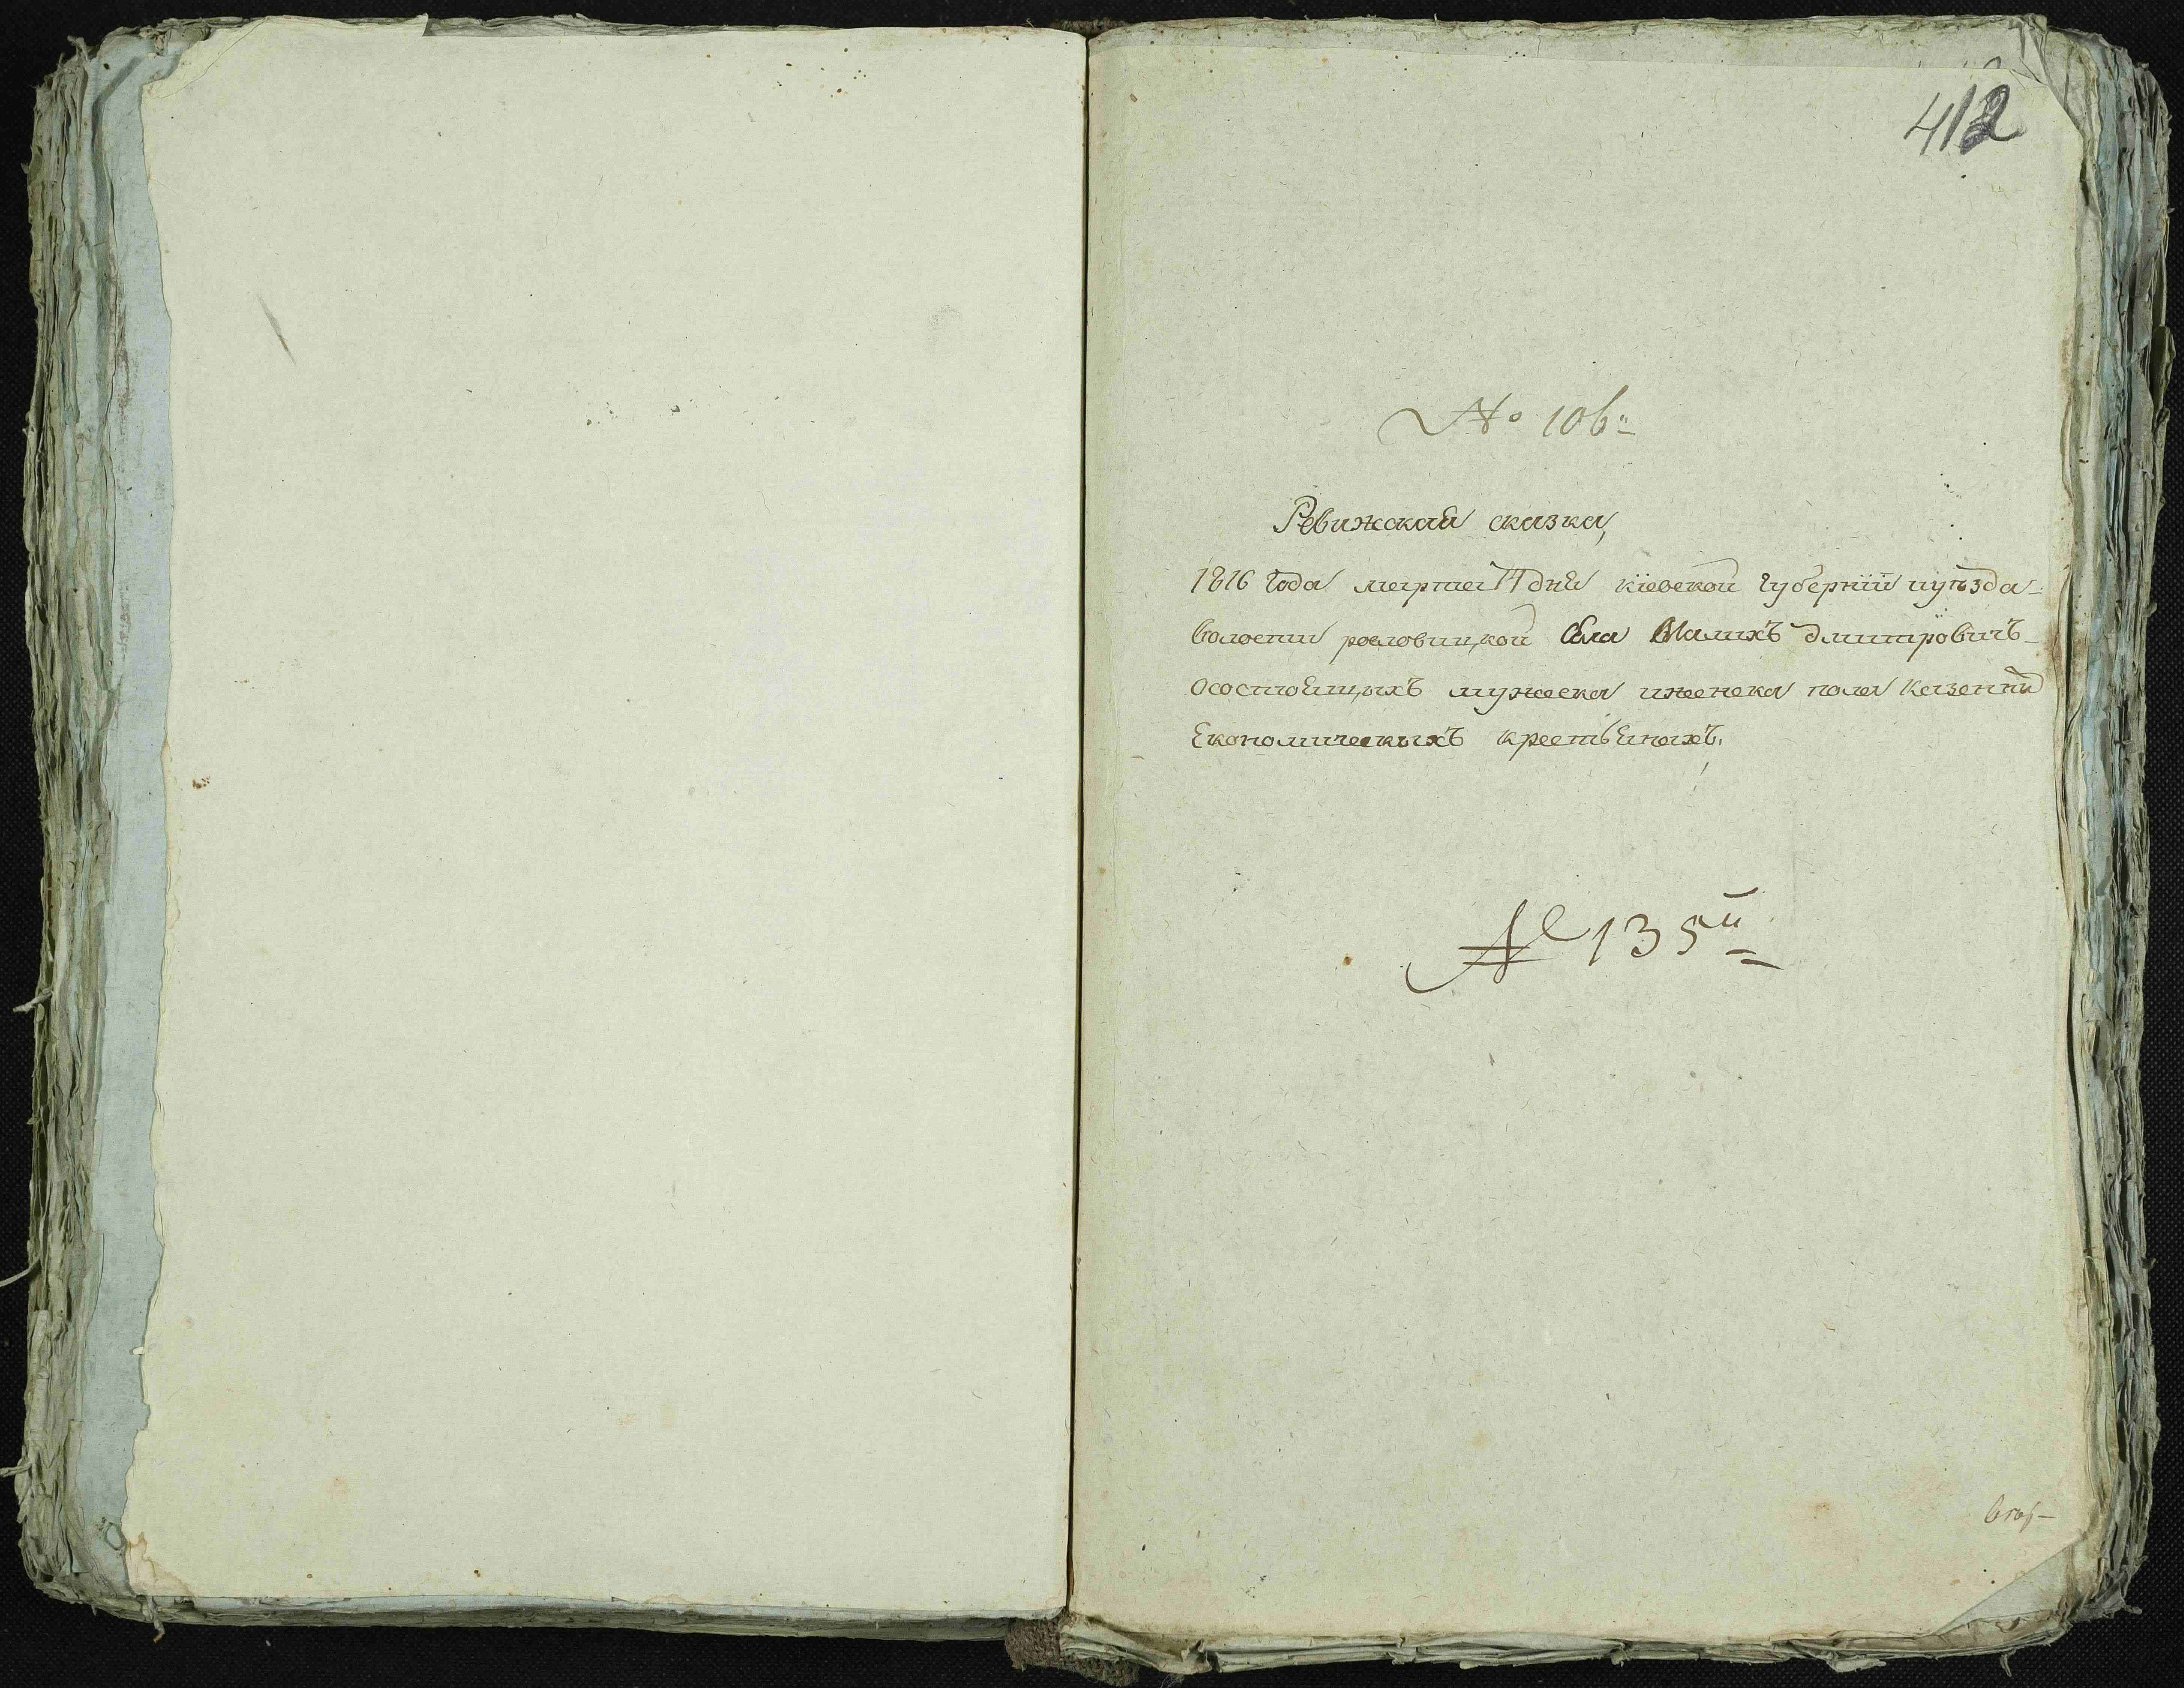 412
№ 106
Ревижская сказка,
1816 года марта дня кіевской губерніи иуѣзда
волости рословицкой Села Малихъ дмитровичъ
осостоящихъ мужеска иженска пола казенни
Економическихъ крестьянахъ,
№ 135й